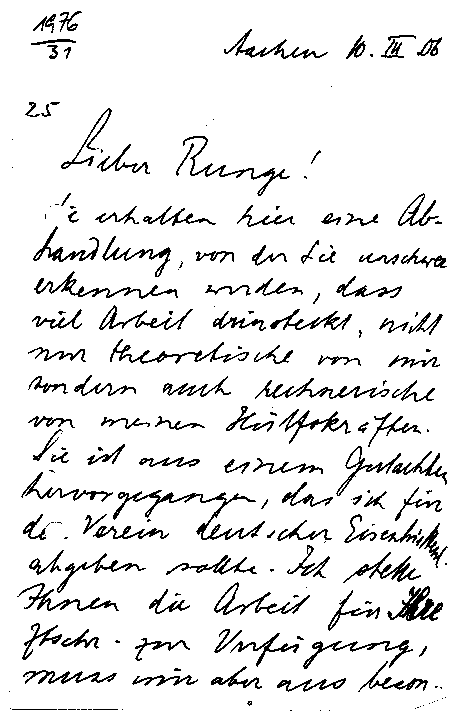 1976
31
Aachen 10. III 06
25
Lieber Runge!
Sie erhalten hier eine Ab-
handlung, von der Sie unschwer
erkennen werden, dass
viel Arbeit drinsteckt, nicht
nur theoretische von mir
sondern auch rechnerische
von meinen Hülfskräften.
Sie ist aus einem Gutachten
hervorgegangen, das ich für
de. Verein deutscher
abgeben sollte. Ich stelle
Ihnen die Arbeit für Ihre
Ztschr. zur Verfügung,
muss mir aber aus beson-